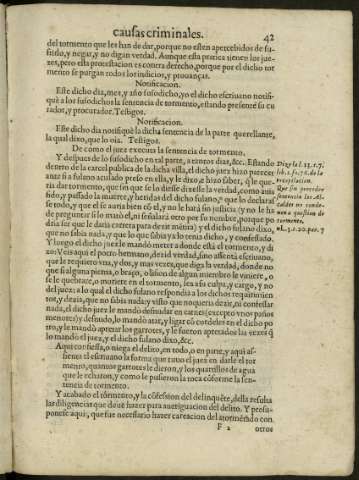 causas criminales. 42
del tormento que les han de dar, porque no esten apercebidos de su-
frirlo, y negar, y no digan verdad. Aunque esta pratica tienen los jue-
zes, pero esta protestacion es contra derecho, porque por el dicho tor
mento se purgan todos los indicios, y prouanças.
Notificacion.
Este dicho dia, mes, y año susodicho, yo el dicho escriuano notifi-
què a los susodichos la sentencia de tormento, estando presente su cu
rador, y procurador. Testigos.
Notificacion.
Este dicho dia notifiquè la dicha sentencia de la parte querellante,
la qual dixo, que lo oìa. Testigos.
De como el juez executa la sentencia de tormento.
Y despues de lo susodicho en tal parte, a tantos dias, &c. Estando
dentro de la carcel publica de la dicha villa, el dicho juez hizo parecer
ante si a fulano aculado preso en ella, y le dixo, e hizo saber, q̃ le que-
ria dar tormento, que sin que se lo diesse dixesse la verdad, como auia
sido, y passado la muerte, y heridas del dicho fulano, que lo declaras
se todo, y que el se auria bien cõ el, y no le harà sin justicia (y no le ha
de preguntar si lo matò el, ni señalarà otro por su nombre, porque po
dria ser que le daria carrera para dezir mētira) y el dicho fulano dixo,
que no sabia nada, y que lo que sabia ya lo tenia dicho, y confessado.
Y luego el dicho juez le mandò meter a donde està el tormento, y di
xo: Veis aquì el potro hermano, dezid verdad, sino assentà escriuano,
que le requiero vna, y dos, y mas vezes, que diga la verdad, donde no
que si alguna pierna, o braço, o lision de algun miembro le viniere, o
se le quebrare, o muriere en el tormento, sea a su culpa, y cargo, y no
del juez: a lo qual el dicho fulano respondia a los dichos requirimien
tos, y dezia, que no sabia nada: y visto que no queria dezir, ni confessar
nada, el dicho juez le mandò desnudar en carnes (excepto vnos paños
menores) y desnudo, lo mandò atar, y ligar cõ cordeles en el dicho po
tro, y le mandò apretar los garrotes, y le fueron apretados las vezes q̃
lo mandò el juez, y el dicho fulano dixo, &c.
Aqui confiessa, o niega el delito, en todo, o en parte, y aqui as-
sienta el escriuano la forma que tuuo el juez en darle el tor
mento, quantos garrotes le dieron, y los quartillos de agua
que le echaron, y como le pusieron la toca cõforme la sen-
tencia de tormento.
Y acabado el tormento, y la cõfession del delinquẽte, della resulta
las diligencias que deue hazer para aueriguacion del delito. Y presu-
ponese aqui, que fue necessario hazer careacion del atormẽtado con
F 2 otros
Diz ye la l. 13. t. 7.
que sin preceder
sentencia los Al-
caldes no conde-
nen a question de
tormento.